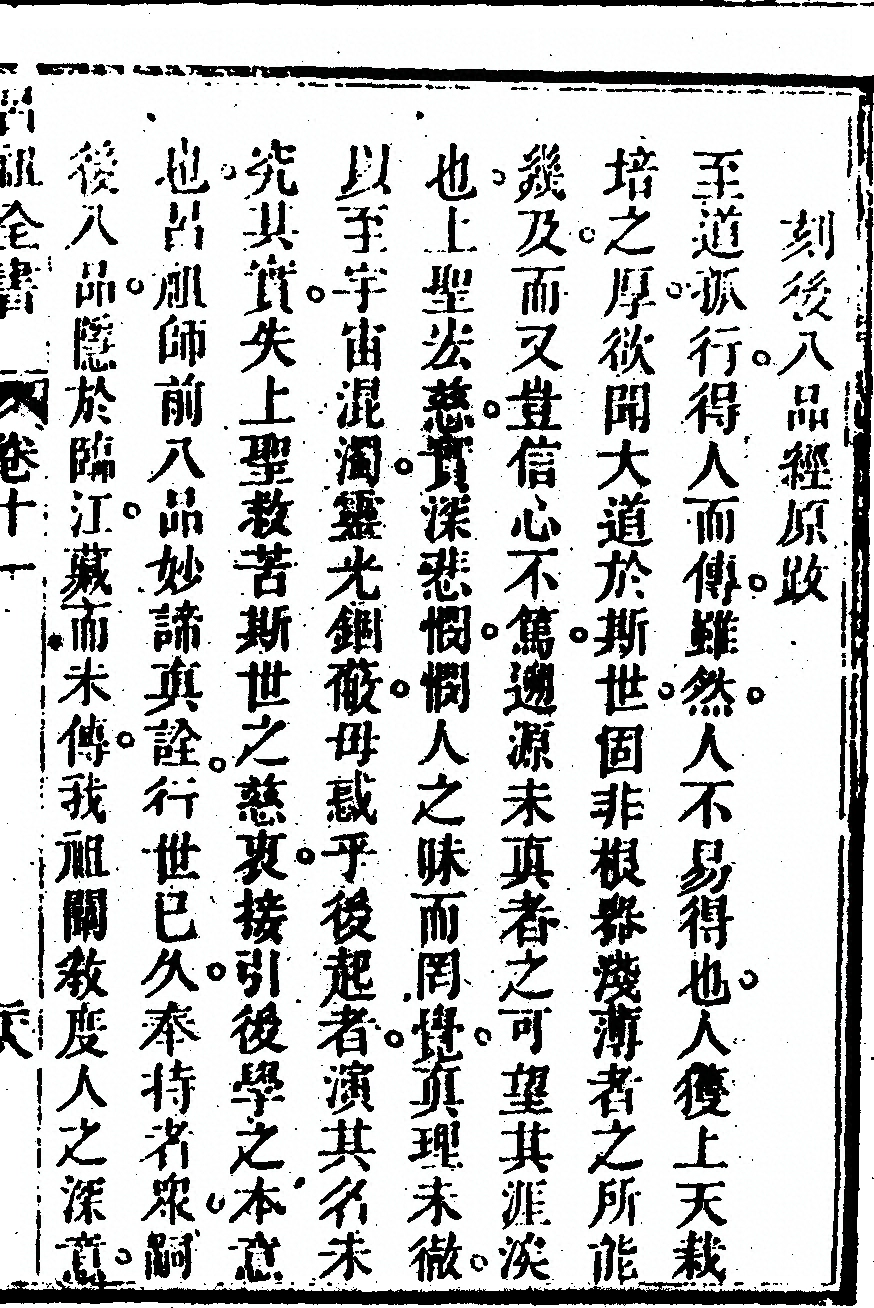 刻後八品經原跋
至道孤行得人而傳雖然人不易得也人獲上天栽
培之厚欲聞大道於斯世固非根器淺薄者之所能
幾及而又豈信心不篤遡源未真者之可望其涯涘
也上聖宏慈實深悲憫憫人之昧而罔覺真理未徹
以至宇宙混濁靈光錮蔽毋惑乎後起者演其名未
究其實失上聖救苦斯世之慈衷接引後學之本意
也呂祖師前八品妙諦真詮行世已久奉持者眾嗣
後八品隱於臨江藏而未傳我祖闡教度人之深意
呂祖全書 卷十一